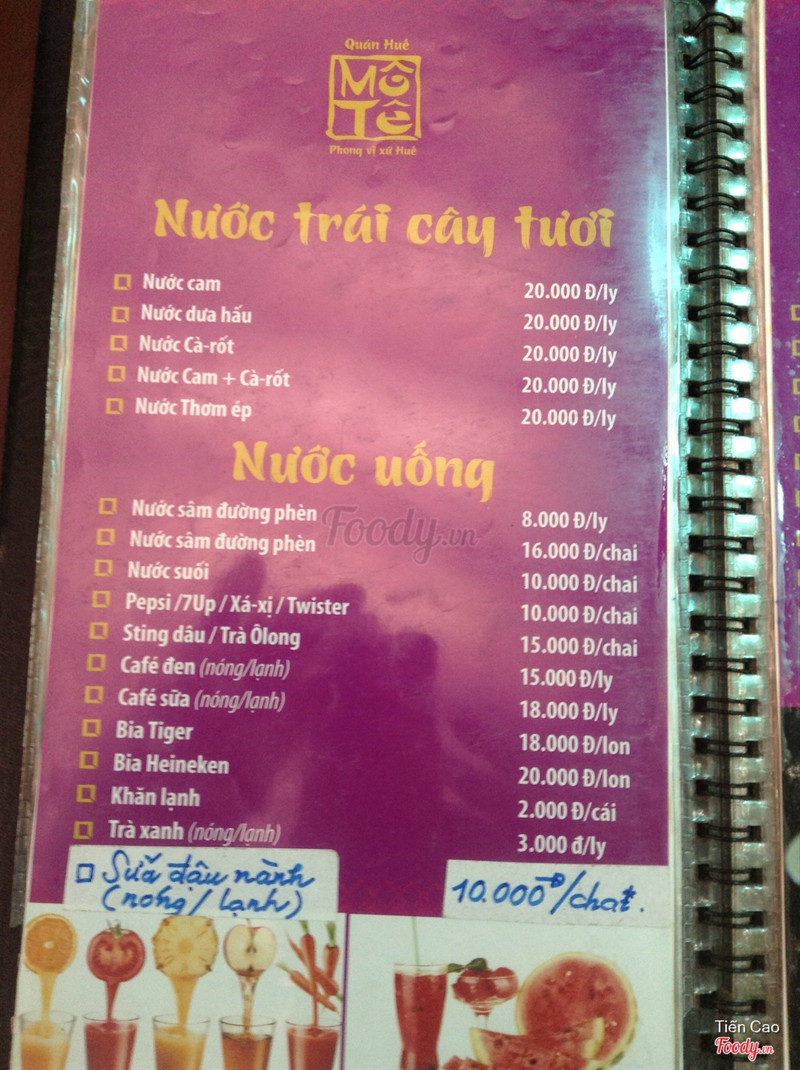 Quán Huế
MÔ
TÊ
Phong vị xứ Huế
Nước trái cây tươi
Nước cam 20.000 Đ/ly
Nước dưa hấu 20.000 Đ/ly
Nước Cà-rốt 20.000 Đ/ly
Nước Cam + Cà-rốt 20.000 Đ/ly
Nước Thơm ép 20.000 Đ/ly
Nước uống
Nước sâm đường phèn 8.000 Đ/ly
Foody.vn
Nước sâm đường phèn 16.000 Đ/chai
Nước suối 10.000 Đ/chai
Pepsi /7Up / Xá-xị / Twister 10.000 Đ/chai
Sting dâu / Trà Ôlong 15.000 Đ/chai
Café đen (nóng/lạnh) 15.000 Đ/ly
Café sữa (nóng/lạnh) 18.000 Đ/ly
Bia Tiger 18.000 Đ/lon
Bia Heineken 20.000 Đ/lon
Khăn lạnh 2.000 Đ/cái
Trà xanh (nóng/lạnh) 3.000 đ/ly
Sữa đậu nành 10.000đ/chai.
(nóng/ lạnh)
Tiến Cao
Foody.vn